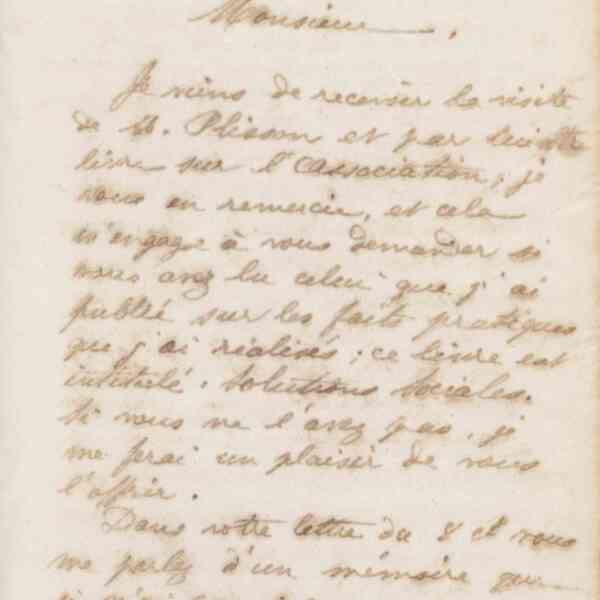 Monsieur,
Je viens de recevoir la visite
de M. Plisson et par lui votre
livre sur l'association, je
vous en remercie, et cela
m'engage à vous demander si
vous avez lu celui que j'ai
publié sur les faits pratiques
que j'ai réalisés ; ce livre est
intitulé : Solutions Sociales.
Si vous ne l'avez pas, je
me ferai un plaisir de vous
l'offrir.
Dans votre lettre du 8 ct vous
me parlez d'un mémoire que